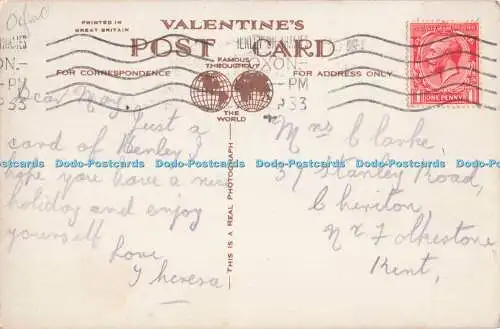 Oxford
PRINTED IN
GREAT BRITAIN
VALENTINE'S
POST CARD
FOR CORRESPONDENCE
FAMOUS
THROUGHOUT
THE
WORLD
FOR ADDRESS ONLY
THIS IS A REAL PHOTOGRAPH
ONE PENNY
Dear May,
Just a
card of Henley I
hope you have a nice
holiday and enjoy
yourself
Love
Theresa
Mrs Clarke
37 Stanley Road,
Cheriton
Nr Folkestone
Kent,
Dodo-Postcards Dodo-Postcards Dodo-Postcards Dodo-Postcards Dodo-Postcards Dodo-Postcards